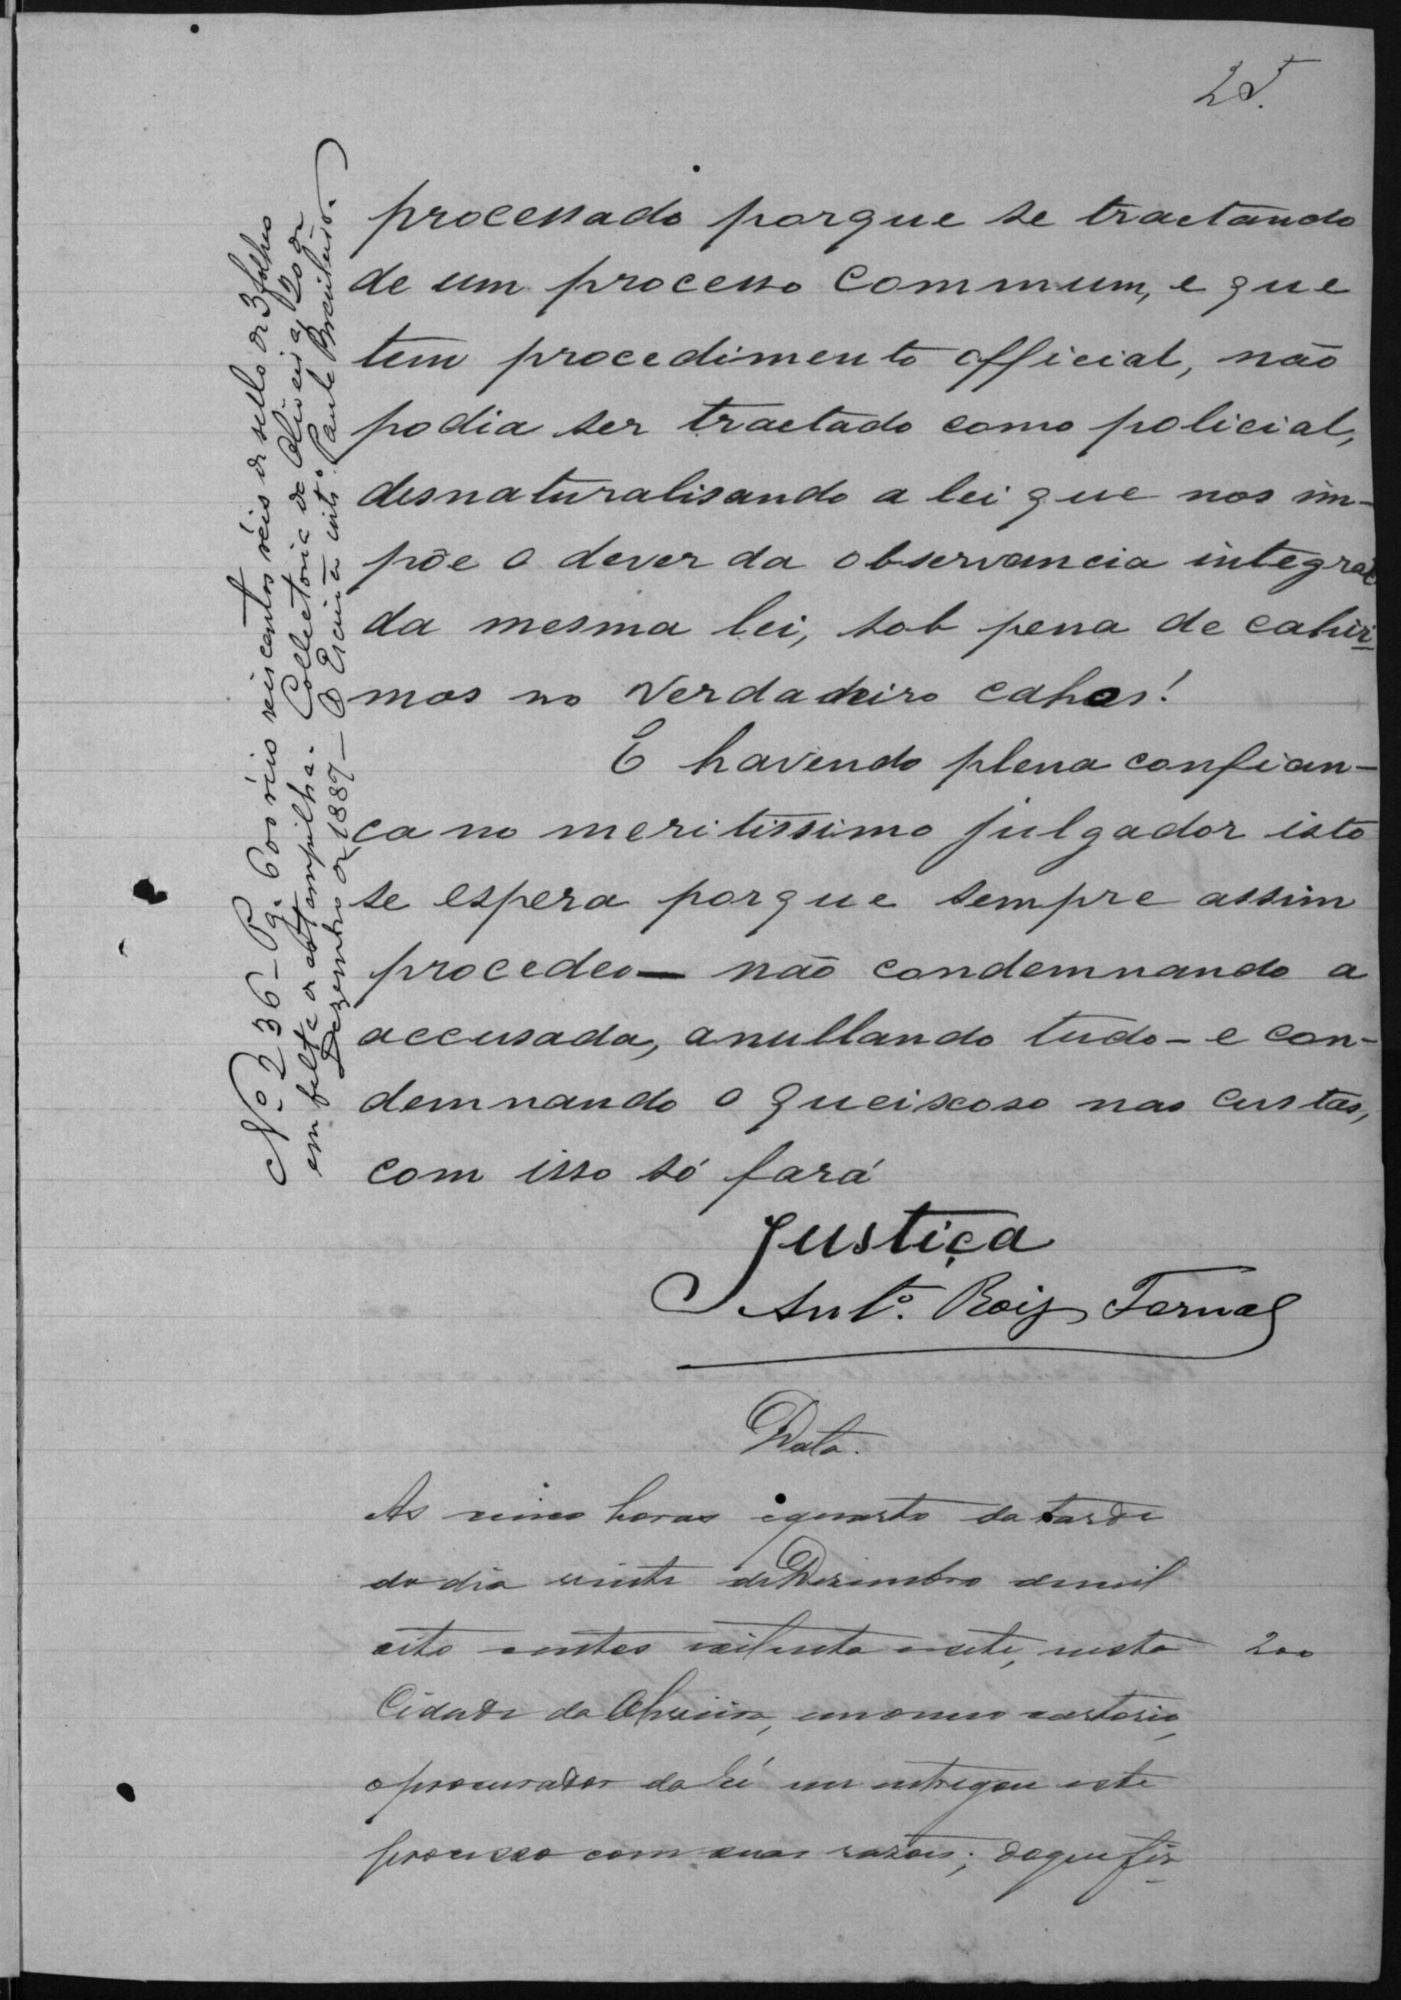 25.
processado porque se tractando
de um processo commum, e que
tem procedimento official, não
podia ser tractado como policial,
desnaturalisando a lei que nos im-
põe o dever da observancia integral
da mesma lei, sob pena de cahir-
mos no verdadeiro cahos!
E havendo plena confian-
ca no meritissimo julgador isto
se espera porque sempre assim
procedeo — não condemnando a
accusada, anullando tudo - e con-
demnando o queixoso nas custas,
com isso só fará
Justiça
Ant.º Roiz
Data.
As cinco horas e quarto da tarde
do dia vinte de Dezembro de mil
oito centos oitenta e sete, nesta 200
Cidade da Oliveira, em o meu cartorio,
o procurador da ré me entregou este
processo com suas razões; do que fiz
Nº 236 - Pg. 600 réis seiscentos réis de sello de 3 folhas
em falta de estampilha. Collectoria da Oliveira, 20 de
Dezembro de 1887 — O Escrivão int.º